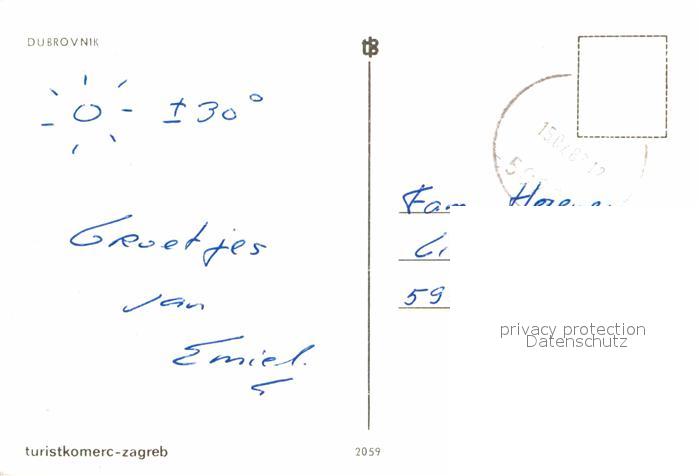 DUBROVNIK
± 30°
Groetjes
van
Emiel.
Fam
59
privacy protection
Datenschutz
turistkomerc-zagreb
2059